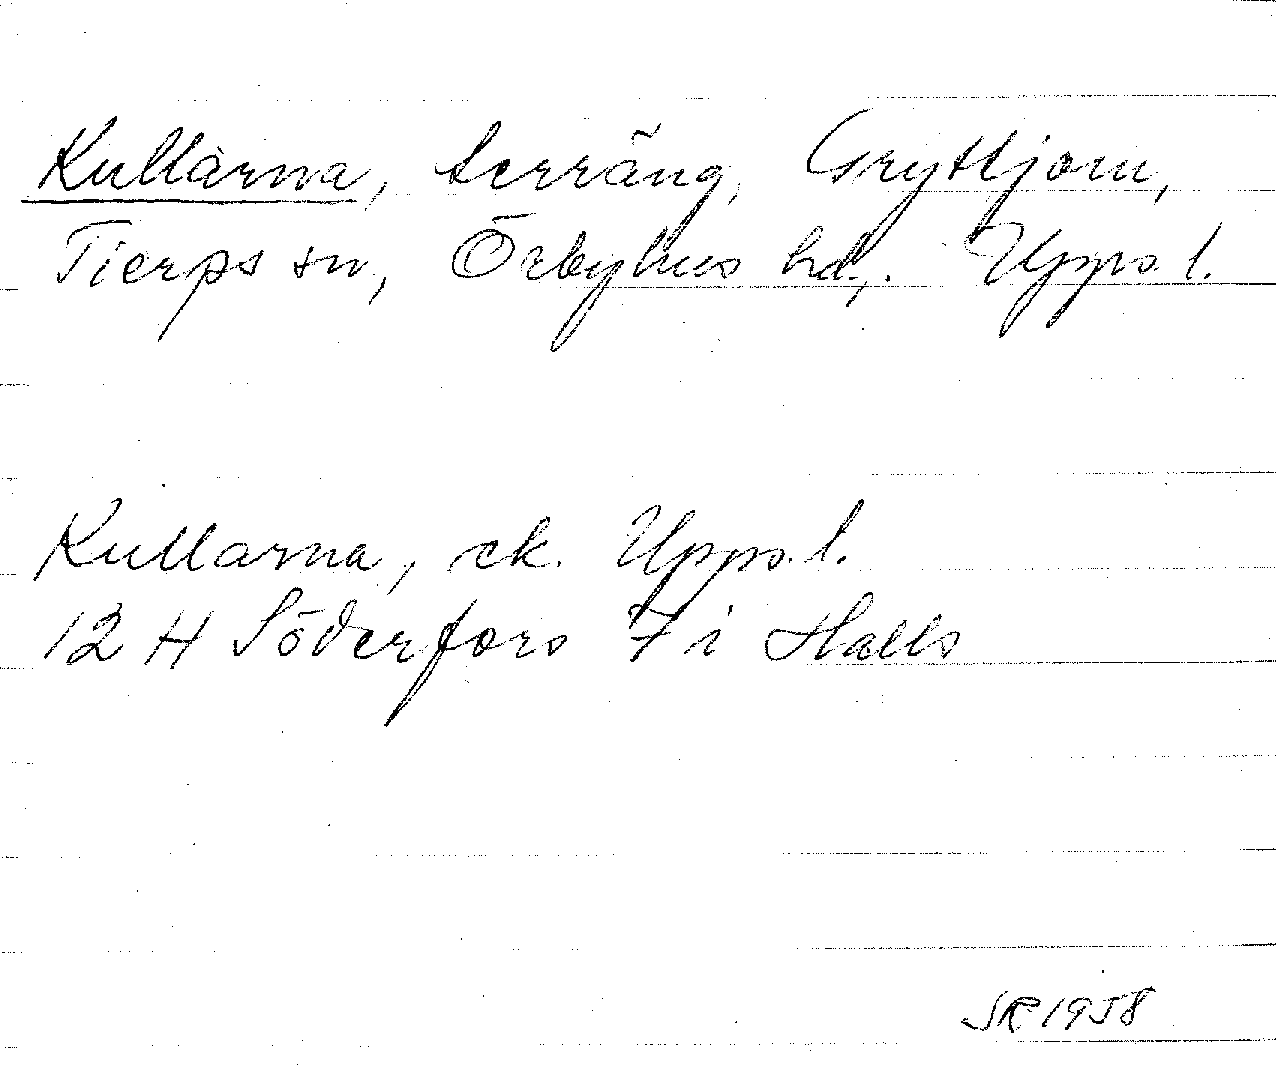 Kullarna, terräng, Gryttjom,
Tierps sn, Örbyhus hd,. Upps. l.
Kullarna, ek. Upps. l.
12 H Söderfors 7 i Halls
SR 1958